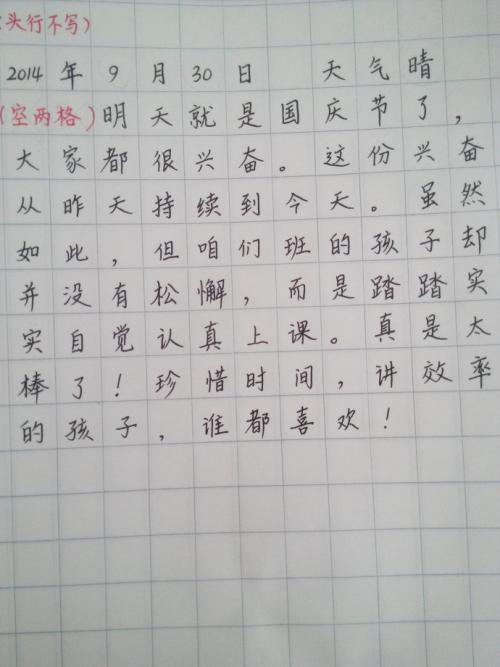 （头行不写）
2014年9月30日 天气晴
（空两格）明天就是国庆节了，
大家都很兴奋。这份兴奋
从昨天持续到今天。虽然
如此，但咱们班的孩子却
并没有松懈，而是踏踏实
实自觉认真上课。真是太
棒了！珍惜时间，讲效率
的孩子，谁都喜欢！